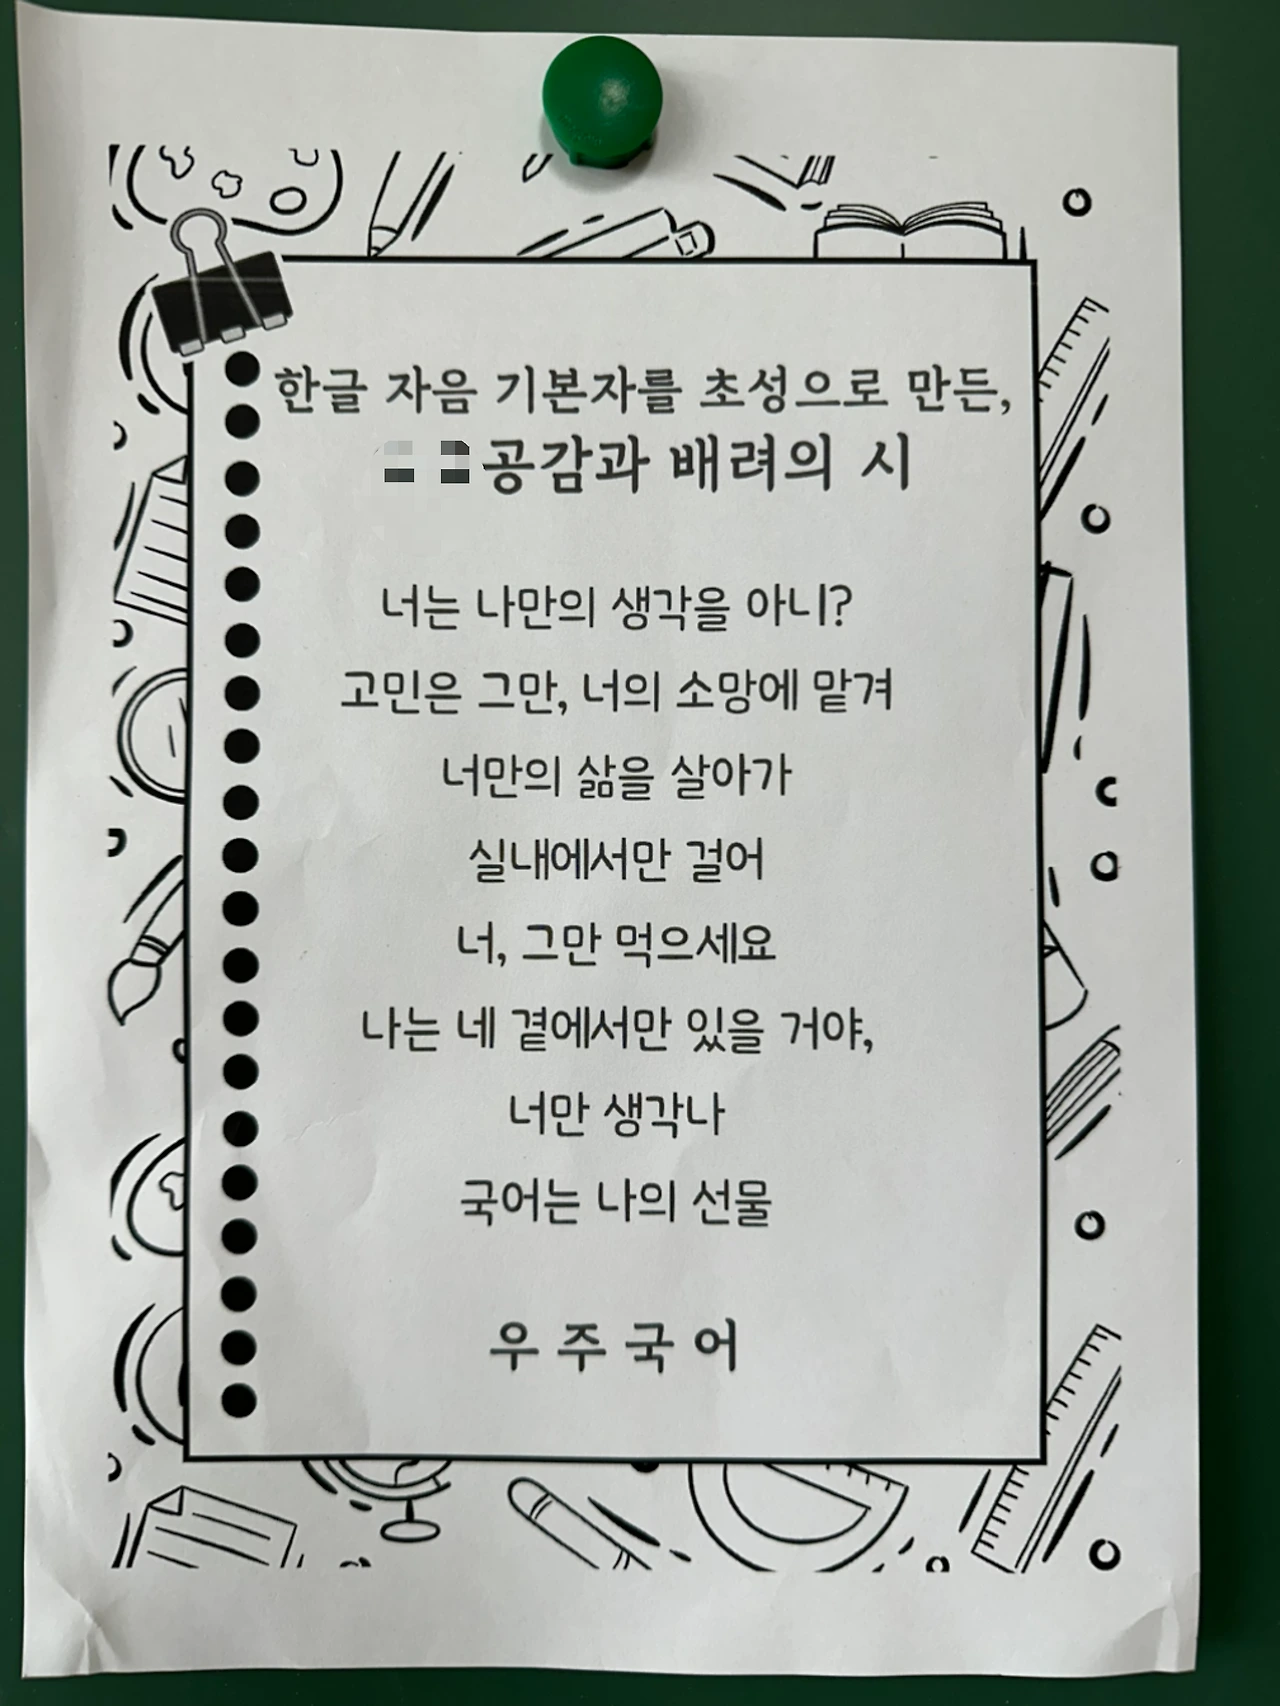 한글 자음 기본자를 초성으로 만든,
공감과 배려의 시
너는 나만의 생각을 아니?
고민은 그만, 너의 소망에 맡겨
너만의 삶을 살아가
실내에서만 걸어
너, 그만 먹으세요
나는 네 곁에서만 있을 거야,
너만 생각나
국어는 나의 선물
우주국어